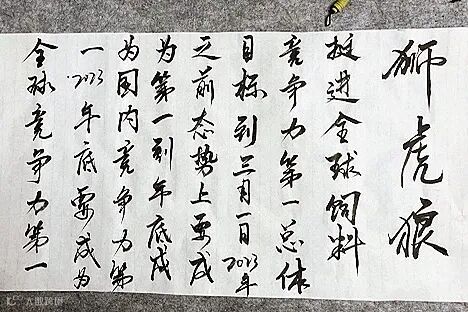 狮虎狼
挺进全球饲料
竞争力第一总体
目标到三月一日2023年
之前态势上要成
为第一到年底成
为国内竞争力第
一2023年底要成为
全球竞争力第一
大数跨境